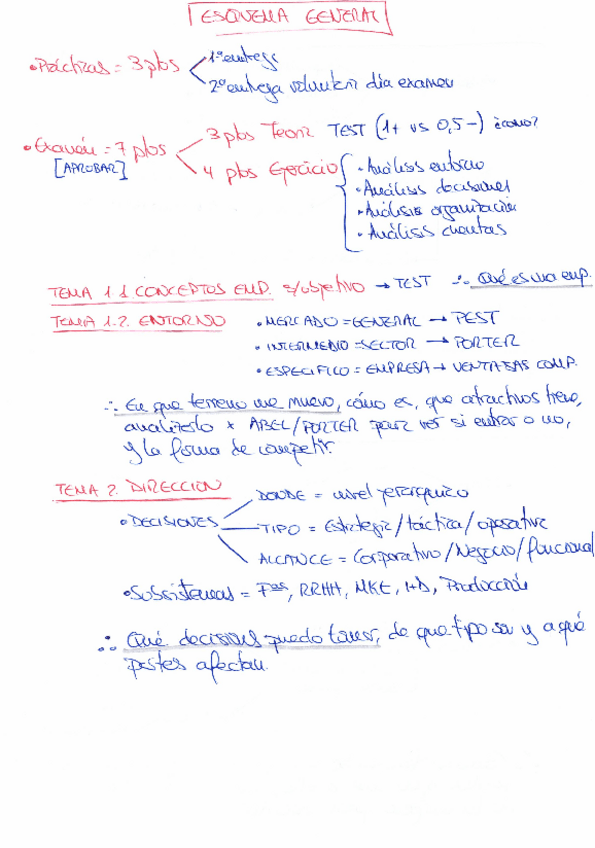 ESQUEMA GENERAL
• Prácticas = 3 ptos
1ª entrega
2ª entrega voluntaria día examen
• Examen = 7 ptos
[APROBAR]
3 ptos Teoría TEST (1+ vs 0,5-) ¿como?
4 ptos Ejercicio
• Análisis entorno
• Análisis decisiones
• Análisis organización
• Análisis cuentas
TEMA 1.1 CONCEPTOS EMP. s/objetivo → TEST ∴ Qué es una emp.
TEMA 1.2. ENTORNO
• MERCADO = GENERAL → PEST
• INTERMEDIO = SECTOR → PORTER
• ESPECIFICO = EMPRESA → VENTAJAS COMP.
∴ En que terreno me muevo, cómo es, que atractivos tiene,
analizarlo x ABEL/PORTER para ver si entrar o no,
y la forma de competir.
TEMA 2. DIRECCION
• DECISIONES
DONDE = nivel jerarquico
TIPO = Estrategia/táctica/operativa
ALCANCE = Corporativo/Negocio/funcional
• Subsistemas = Fªs, RRHH, MKT, I+D, Producción
∴ Qué decisiones puedo tomar, de que tipo son y a qué
partes afectan.